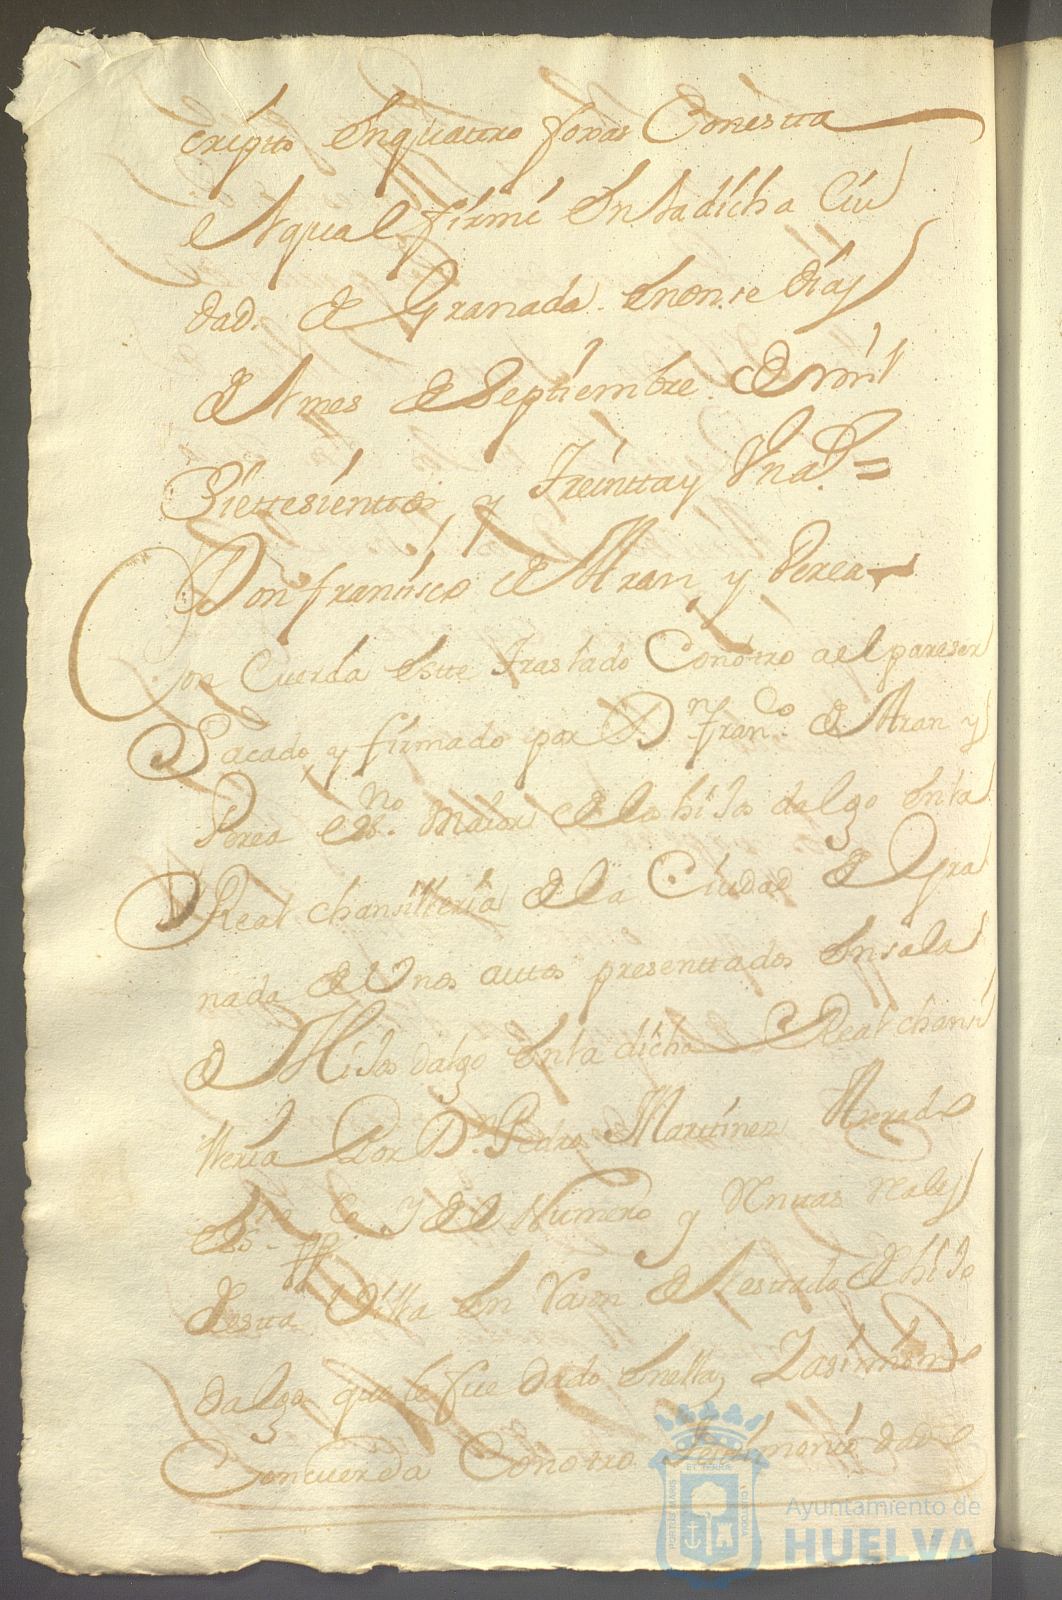 cripto Enquatro foxas Conesta
el qual firmé En la dicha Ciu
dad. de Granada. En onse Días
del mes de Septiembre. de mil
Siettesienttos y Treintta y Un a.s =
Don francisco de Aran y Perea
Con Cuerda Estte Traslado Con otro al pareser
Sacado, y firmado por Dn. Franco. de Aran y
Perea Esno. Maior de los hijos dalgo En la
Real chansilleria de la Ciudad de Gra
nada de Unos auttos presenttados En sala
de Hijos dalgo En la dicha Real chansi
lleria Por Dn. Pedro Martinez
Numero y
desta Villa En Rason del estado de hijo
dalgo que le fue dado En ella, Y asimismo
Concuerda Con otro Testimonio dado
Ayuntamiento de
HUELVA